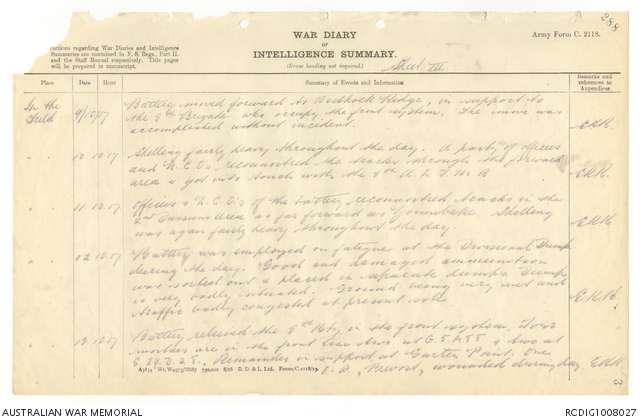 288
WAR DIARY
OR
INTELLIGENCE SUMMARY.
(Erase heading not required.) Sheet III
Army Form C. 2118.
uctions regarding War Diaries and Intelligence
Summaries are contained in F. S. Regs., Part II.
and the Staff Manual respectively. Title pages
will be prepared in manuscript.
Place
Date
Hour
Summary of Events and Information
Remarks and
references to
Appendices
In the
Field
9/10/17
Battery moved forward to Ridge, in support to
the 8th Brigade who occupy the front system. The move was
accomplished without incident.
E.R.K.
" 10.10.17
Shelling fairly heavy throughout the day. A party of officers
and N.C.O's reconnoitred the tracks through the forward
area & got into touch with the 8th A.L.T.M.B
E.R.K.
" 11.10.17
Officers & N.C.O's of the battery reconnoitred tracks in the
area as far forward as Shelling
was again fairly heavy throughout the day.
E.R.K.
" 12.10.17
Battery was employed on fatigue at the Divisional Dump
during the day. Good and damaged ammunition
was sorted out & placed in separate dumps. Dump
is very badly situated. Ground being very wet and
traffic badly congested at present site.
E.R.K.
" 13.10.17
Battery relieved the 8th Bty in the front system. Four
mortars are in the front line two at & two at
Remainder in support at Garter Point. One
O.R., wounded during day
E.R.K.
D. D. & L. Ltd.
3
AUSTRALIAN WAR MEMORIAL
RCDIG1008027